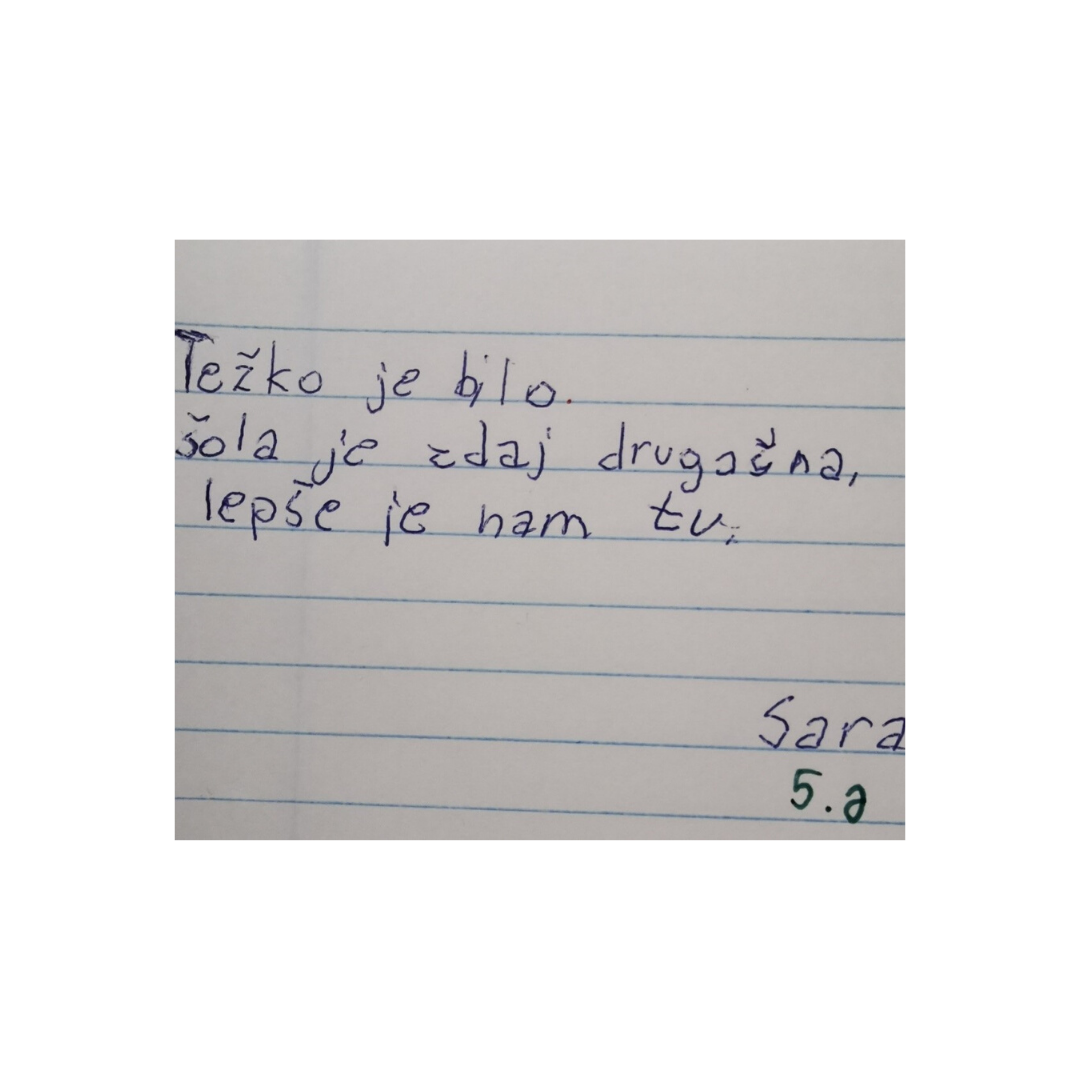 Težko je bilo.
šola je zdaj drugašna,
lepše je nam tu.
Sara
5.a